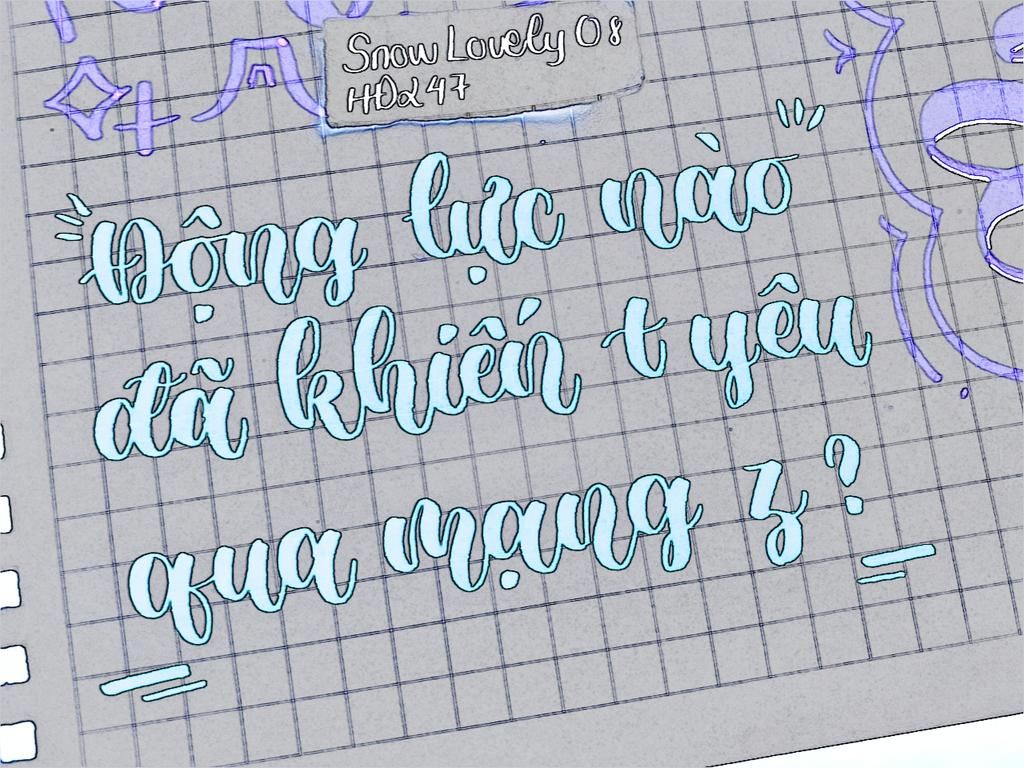 Snow Lovely 08
HĐ247
Động lực nào
đã khiến t yêu
qua mạng z?